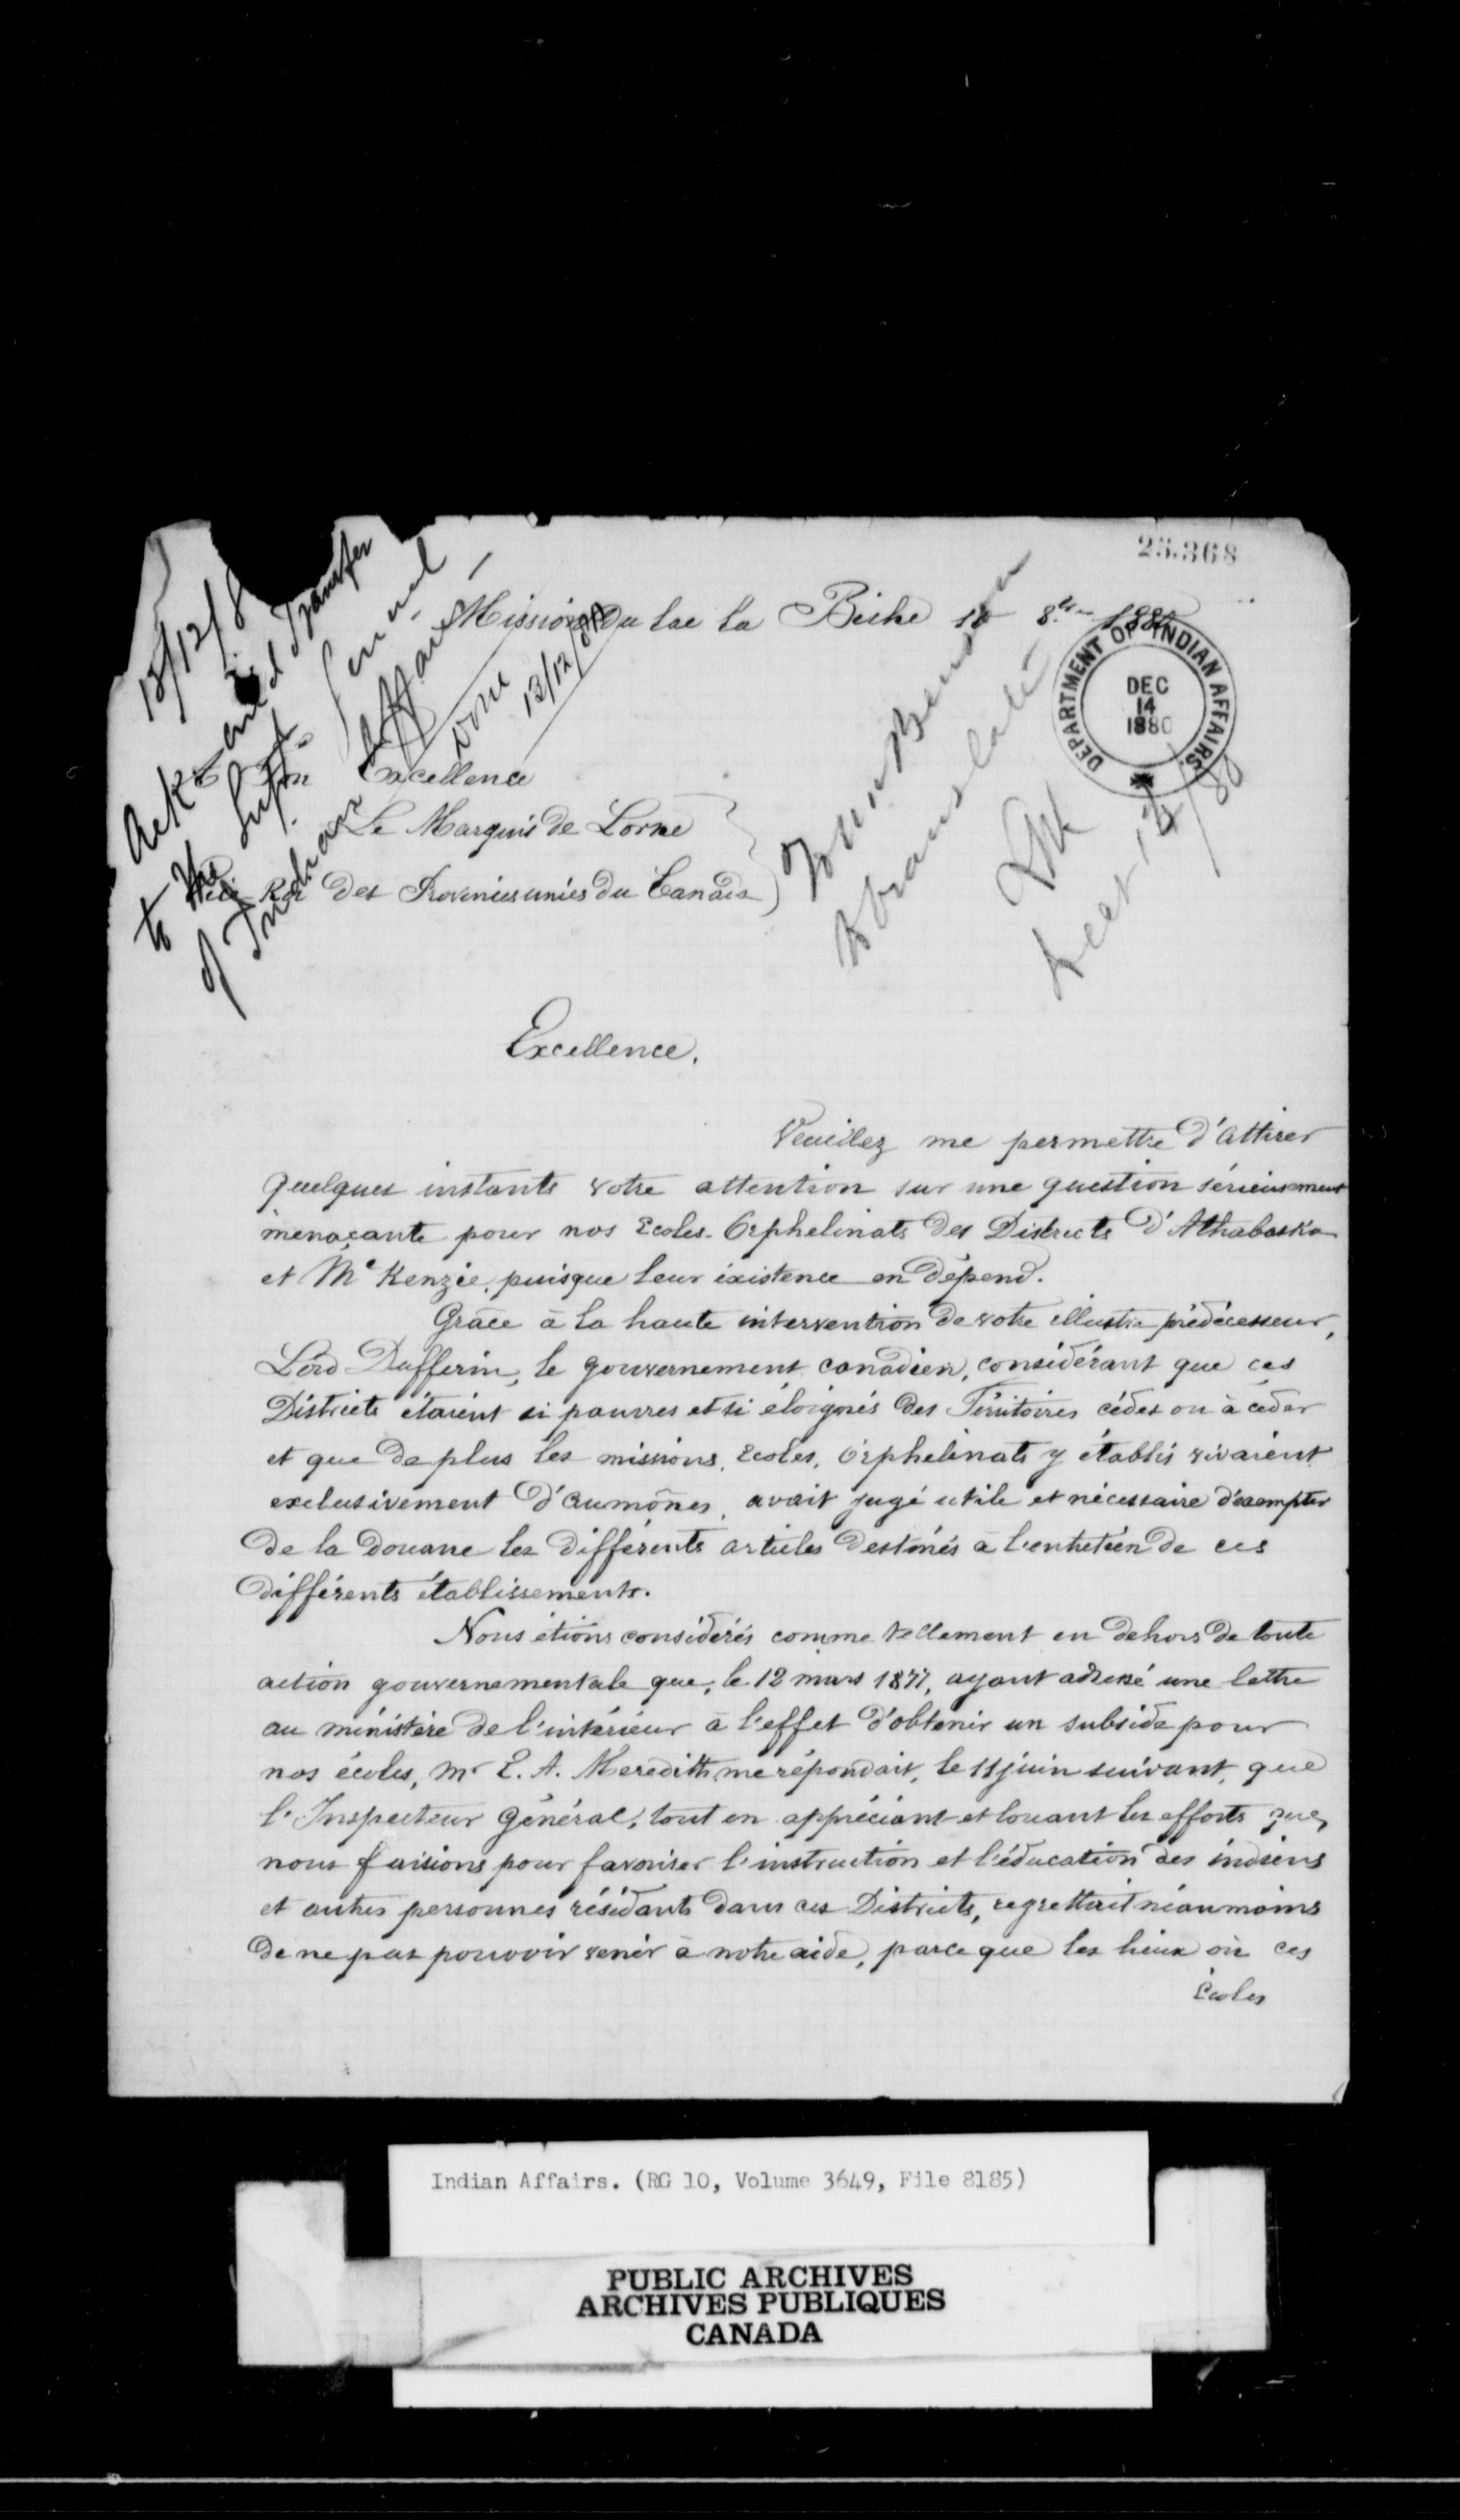 25.368
Mission du lac la Biche 10 8bre 1880
DEPARTMENT OF INDIAN AFFAIRS.
DEC
14
1880
Ackt and Transfer
to the Supt. General
of Indian Affairs
Lorne 13/12/80
Son Excellence
Le Marquis de Lorne
Vice Roi des Provinces unies du Canada
translate
Dec 14/80
Excellence.
Veuillez me permettre d'attirer
quelques instants votre attention sur une question sérieusement
menaçante pour nos Ecoles-Orphelinats des Districts d'Athabaska
et Mc Kenzie, puisque leur existence en dépend.
Grâce à la haute intervention de votre illustre prédécesseur,
Lord Dufferin, le gouvernement canadien, considérant que ces
Districts étaient si pauvres et si éloignés des Territoires cédés ou à céder
et que de plus les missions, Ecoles, Orphelinats y établis vivaient
exclusivement d'aumônes, avait jugé utile et nécessaire d'exempter
de la Douane les différents articles destinés à l'entretien de ces
différents établissements.
Nous étions considérés comme tellement en dehors de toute
action gouvernementale que, le 12 mars 1877, ayant adressé une lettre
au ministère de l'intérieur à l'effet d'obtenir un subside pour
nos écoles, Mr E. A. Meredith me répondait, le 11 juin suivant, que
l'Inspecteur Général, tout en appréciant et louant les efforts que
nous faisions pour favoriser l'instruction et l'éducation des indiens
et autres personnes résidants dans ces Districts, regrettait néanmoins
de ne pas pouvoir venir à notre aide, parce que les lieux où ces
Ecoles
Indian Affairs. (RG 10, Volume 3649, File 8185)
PUBLIC ARCHIVES
ARCHIVES PUBLIQUES
CANADA